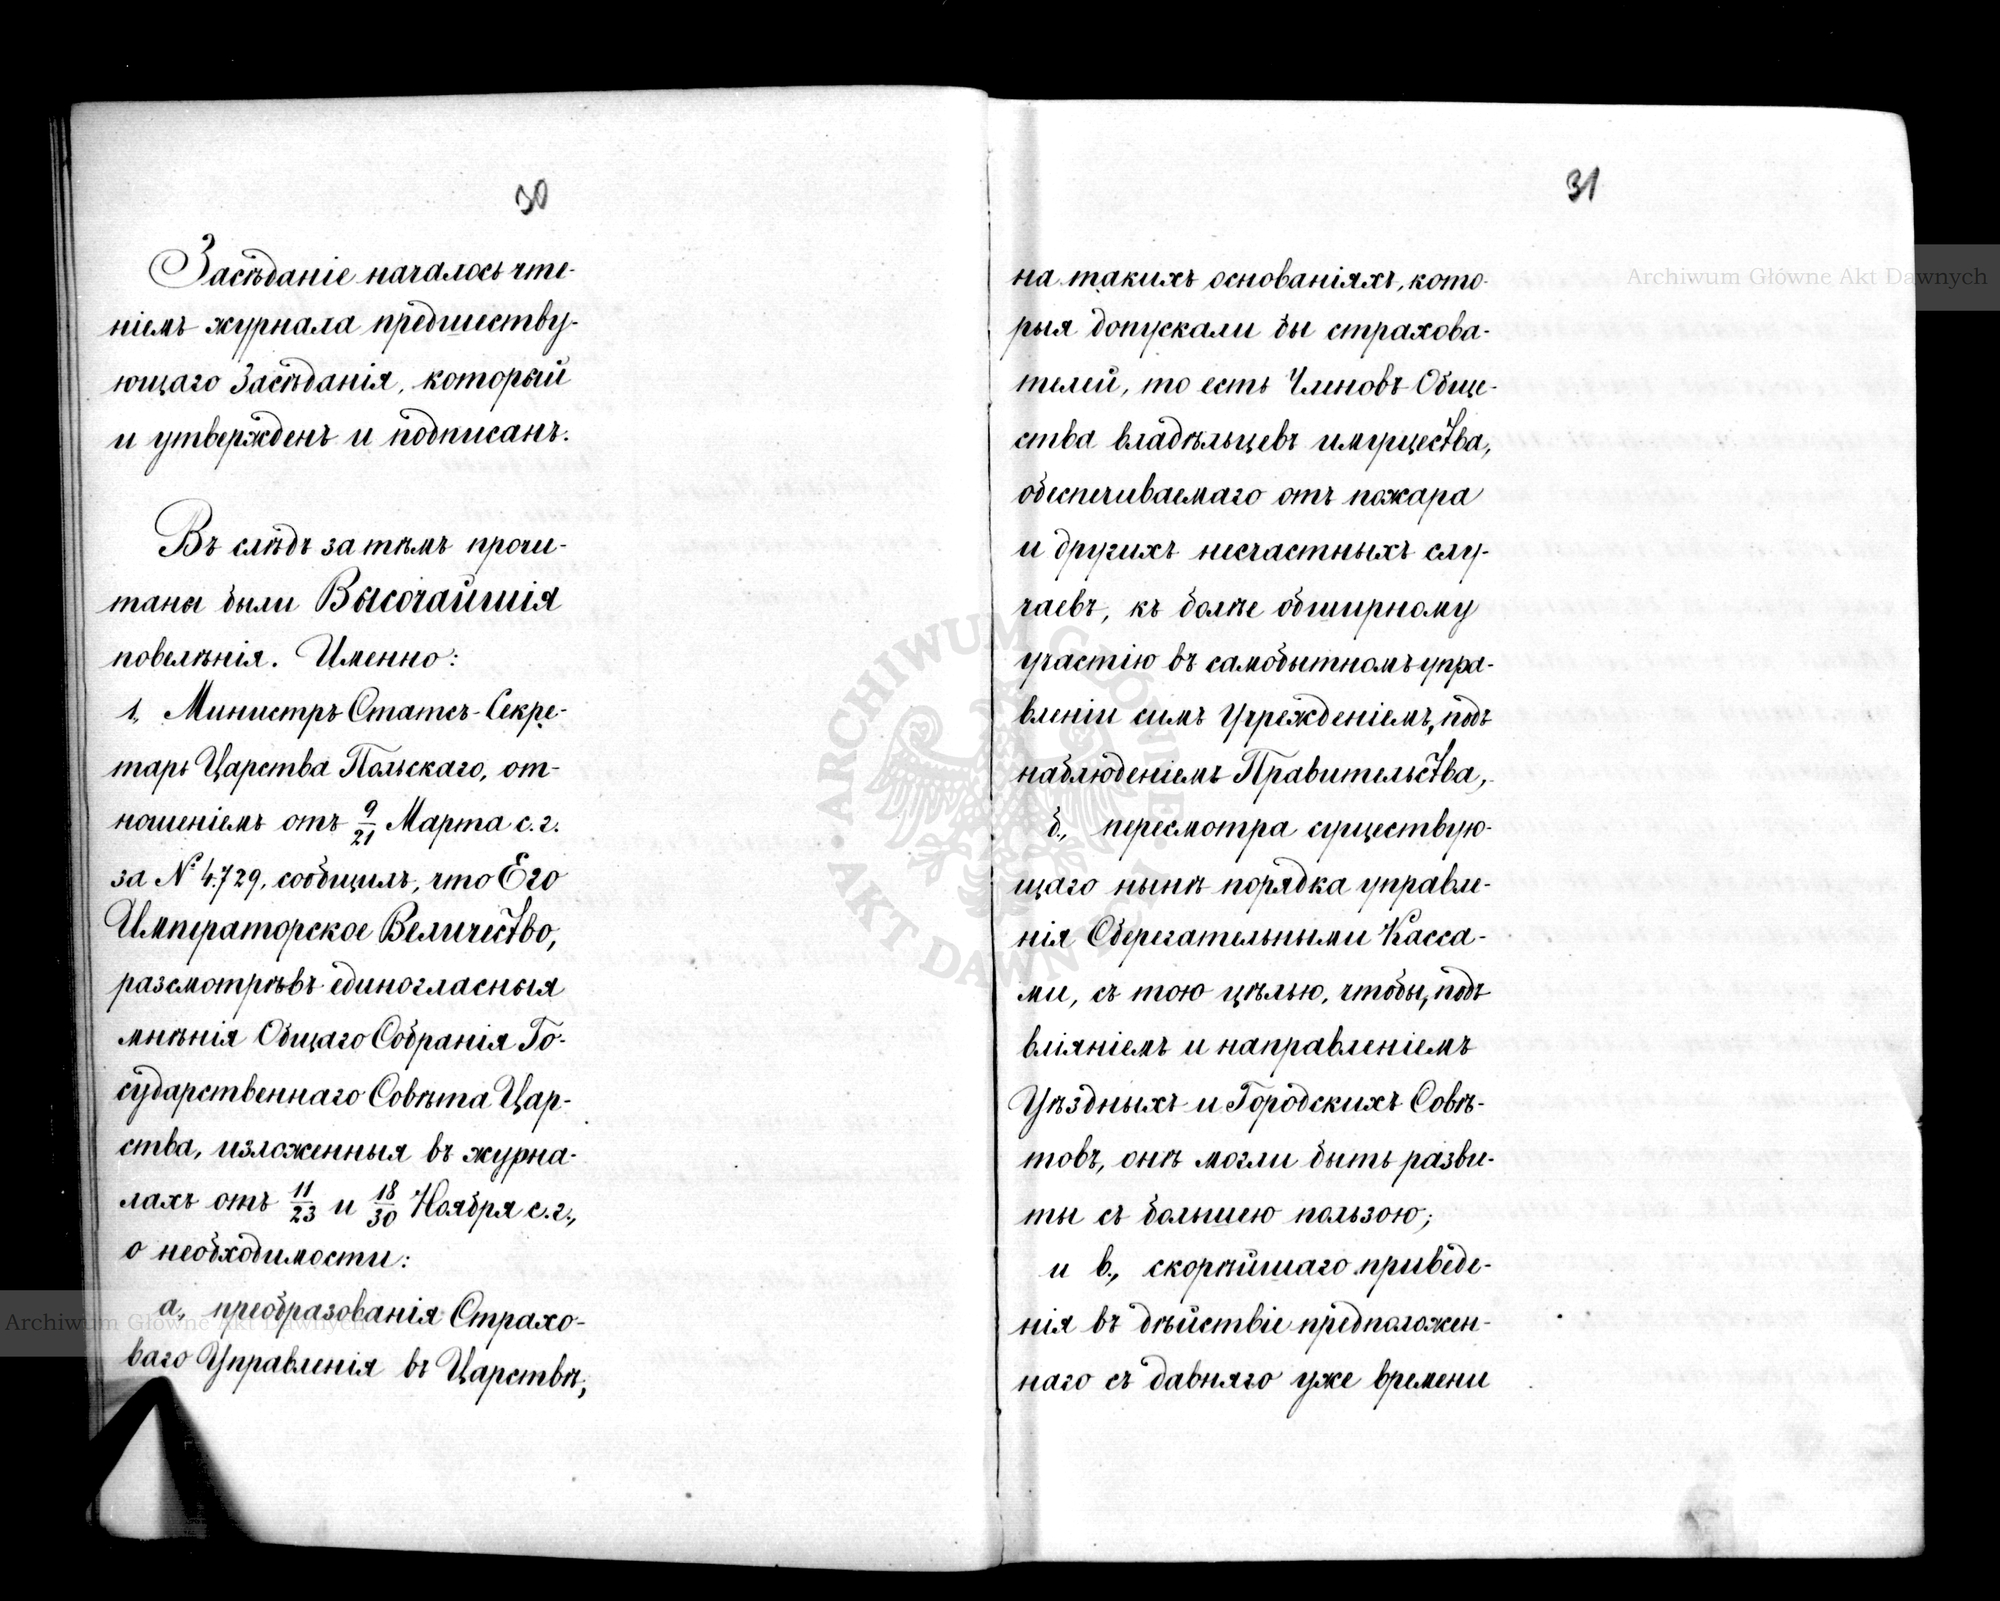 30
Засѣданіе началось чте-
ніемъ журнала предшеству-
ющаго Засѣданія, который
и утвержденъ и подписанъ.
Въ слѣдъ за тѣмъ прочи-
таны были Высочайшія
повелѣнія. Именно:
1., Министръ Статсъ-Секре-
тарь Царства Польскаго, от-
ношеніемъ отъ 9/21 Марта с. г.
за № 4.729, сообщилъ, что Его
Императорское Величество,
разсмотрѣвъ единогласныя
мнѣнія Общаго Собранія Го-
сударственнаго Совѣта Цар-
ства, изложенныя въ журна-
лахъ отъ 11/23 и 18/30 Ноября с. г.,
о необходимости:
а., преобразованія Страхо-
ваго Управленія въ Царствѣ,
31
на такихъ основаніяхъ, кото-
рыя допускали бы страхова-
телей, то есть Членовъ Обще-
ства владѣльцевъ имущества,
обеспечиваемаго отъ пожара
и другихъ несчастныхъ слу-
чаевъ, къ болѣе обширному
участію въ самобытномъ упра-
вленіи симъ Учрежденіемъ, подъ
наблюденіемъ Правительства,
б., пересмотра существую-
щаго нынѣ порядка управле-
нія Сберегательными Касса-
ми, съ тою цѣлью, чтобы, подъ
вліяніемъ и направленіемъ
Уѣздныхъ и Городскихъ Совѣ-
товъ, онѣ могли быть разви-
ты съ большею пользою;
и в., скорѣйшаго приведе-
нія въ дѣйствіе предположен-
наго съ давняго уже времени
Archiwum Główne Akt Dawnych
Archiwum Główne Akt Dawnych
ARCHIWUM GŁÓWNE
AKT DAWNYCH